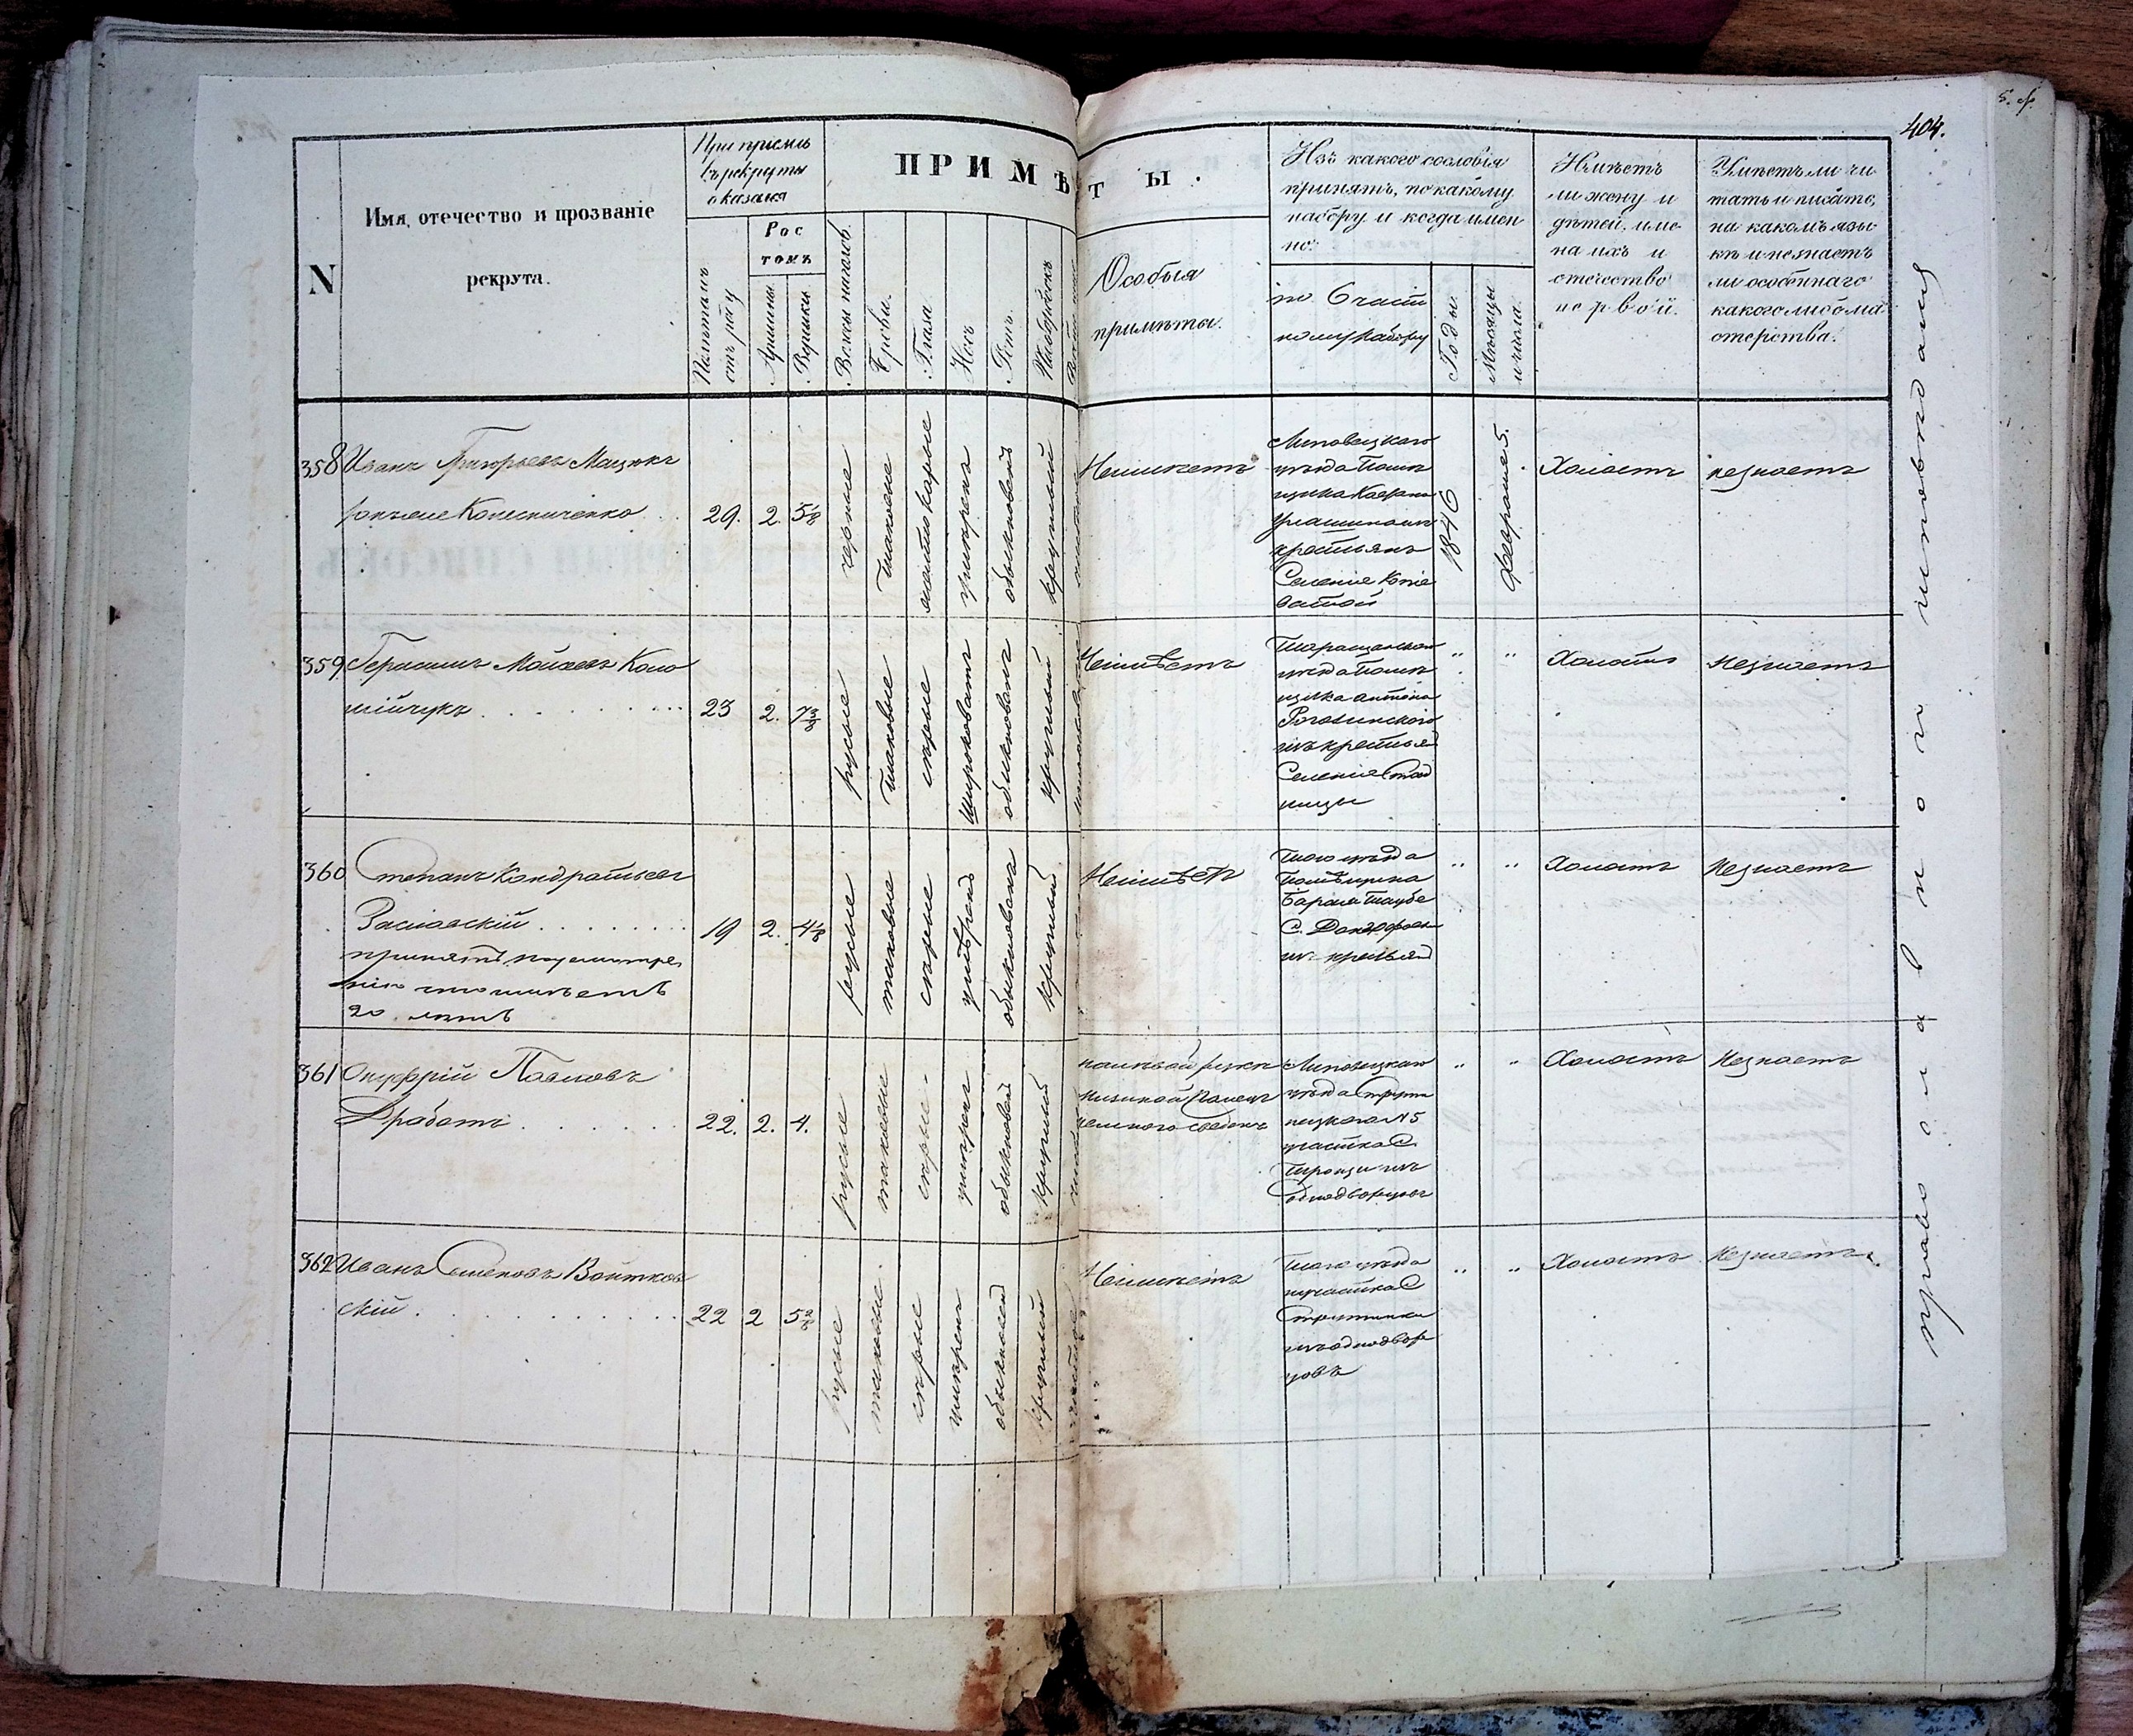 5. ф.
404.
N
Имя, отечество и прозваніе
рекрута.
При приемѣ
въ рекруты
оказался
Полѣтамъ
отъ роду
Рос
томъ
Аршины
Вершки
ПРИМѢТЫ.
Волосы на голов.
Брови.
Глаза.
Носъ
Ротъ.
Подбородокъ
Особыя
примѣты.
Изъ какого сословія
принятъ, по какому
набору и когда имен
но:
по 6 части
ному набору
Годы.
Мѣсяцы
и числа.
Имѣетъ
ли жену и
дѣтей, име
на ихъ и
отечество
первой.
Умѣетъ ли чи
тать и писать,
на какомъ язы
кѣ и незнаетъ
ли особеннаго
какого либо ма
стерства.
358 Иванъ Григорьевъ Мацюкъ
онъ же Колисниченко
29. 2. 5 1/8
черные
таковые
желто карые
умѣренъ
обыкновенъ
круглый
Неимѣетъ
Липовецкаго
уѣзда Помѣ
щика
крестьянъ
Селенія Копіе
ватой
1846
Февраля 5.
Холостъ
незнаетъ
359 Герасимъ Мойсеевъ Коло
мійчукъ
23 2. 7 3/8
русые
таковые
сѣрые
широковатъ
обыкновенъ
круглый
Неимѣетъ
Таращанскаго
уѣзда Помѣ
щика Антона
Роговинскаго
изъ крестьянъ
Селенія Стад
ницы
" "
Холостъ
Незнаетъ
360 Степанъ Кондратьевъ
Заславскій
принятъ по усмотре
нію что имѣетъ
20 лѣтъ
19 2. 4 1/8
русые
таковые
сѣрые
умѣренъ
обыкновенъ
круглый
Неимѣетъ
Того уѣзда
Помѣщика
Барона Таубе
изъ крестьянъ
" "
Холостъ
Незнаетъ
361 Онуфрій Павловъ
Драбатъ
22. 2. 4.
русые
таковые
сѣрые
умѣренъ
обыкновен
круглый
на лѣвой руки
мизиной Палецъ
немного сведенъ
Липовецкаго
уѣзда
участка С.
изъ
однодворцовъ
" "
Холостъ
Незнаетъ
362 Иванъ Семеновъ Войтков
скій
22 2 5 2/8
русые
таковые
сѣрые
умѣренъ
обыкновен
круглый
Неимѣетъ
Того уѣзда
участка С
изъ однодвор
цовъ
" "
Холостъ
Незнаетъ